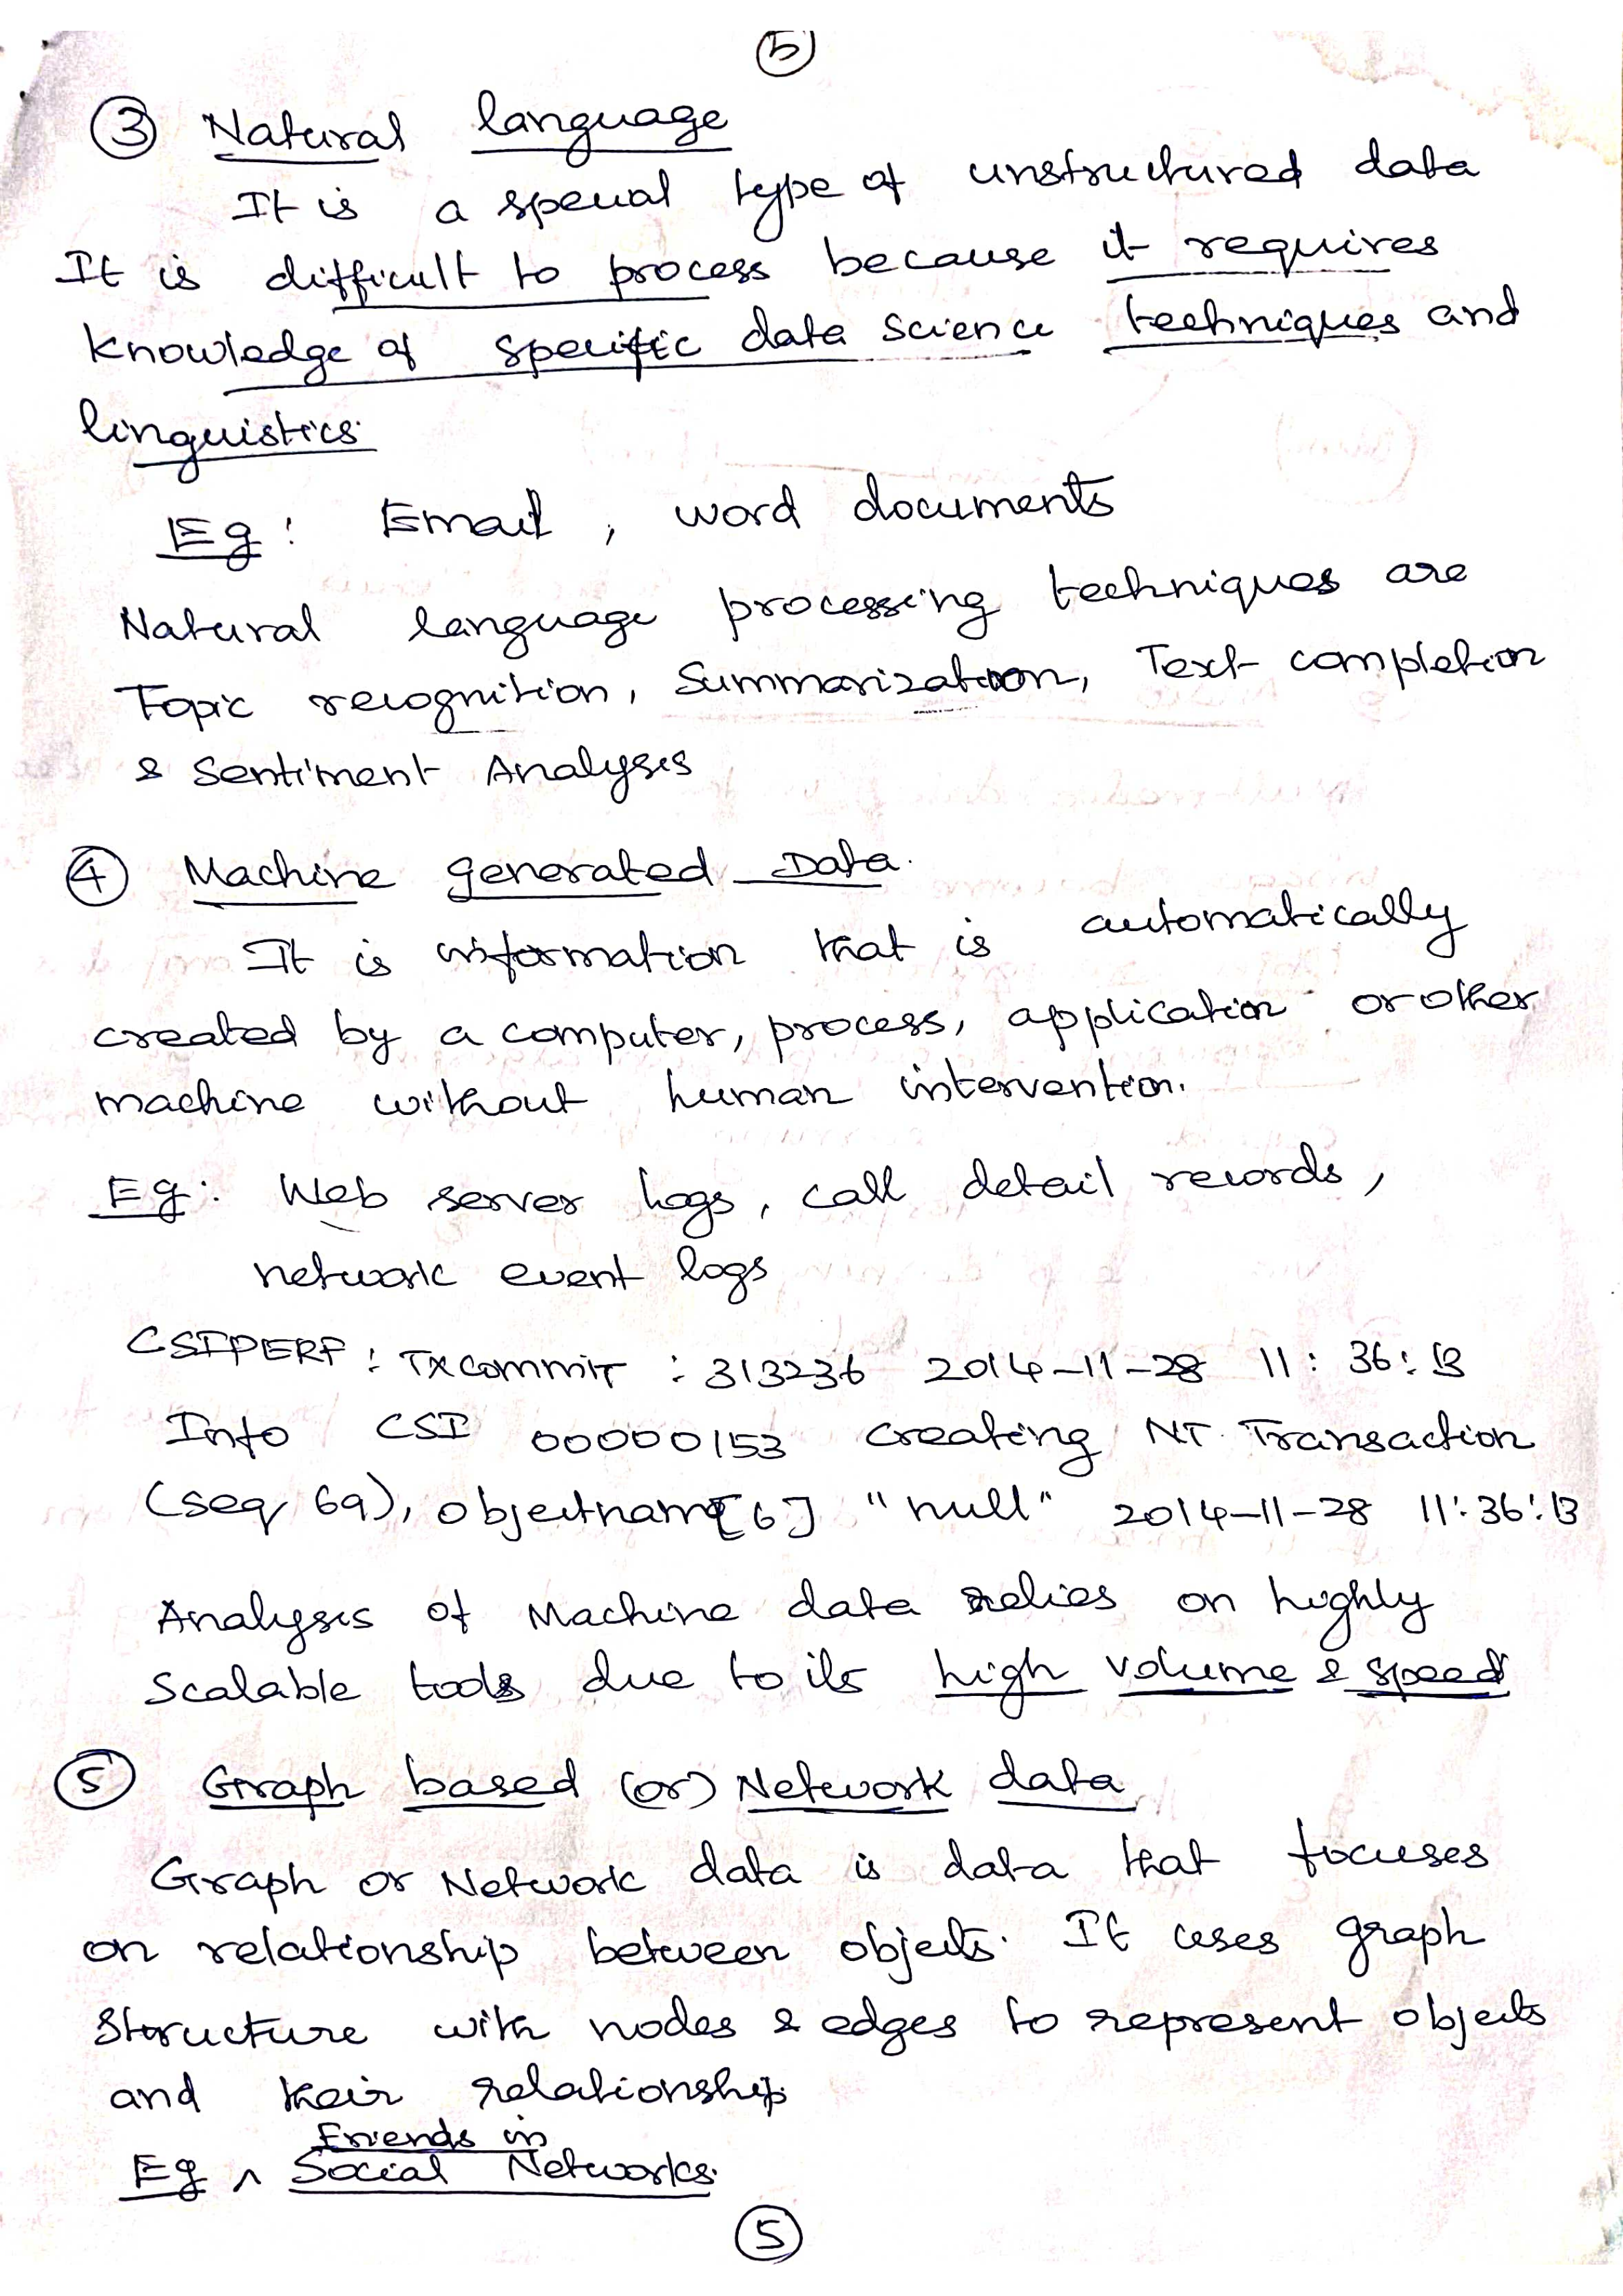 5
3 Natural language
It is a special type of unstructured data
It is difficult to process because it requires
knowledge of specific data science techniques and
linguistics.
Eg: Email, word documents
Natural language processing techniques are
Topic recognition, Summarization, Text completion
& Sentiment Analysis
4 Machine generated Data.
It is information that is automatically
created by a computer, process, application or other
machine without human intervention.
Eg: Web server logs, call detail records,
network event logs
CSIPERF: TXCOMMIT : 313236 2014-11-28 11:36:13
Info CSI 00000153 creating NT Transaction
(seq 69), objectname[6] "null" 2014-11-28 11:36:13
Analysis of Machine data relies on highly
scalable tools due to its high volume & speed
5 Graph based (or) Network data
Graph or Network data is data that focuses
on relationship between objects. It uses graph
structure with nodes & edges to represent objects
and their relationship
Friends in
Eg ^ Social Networks.
5